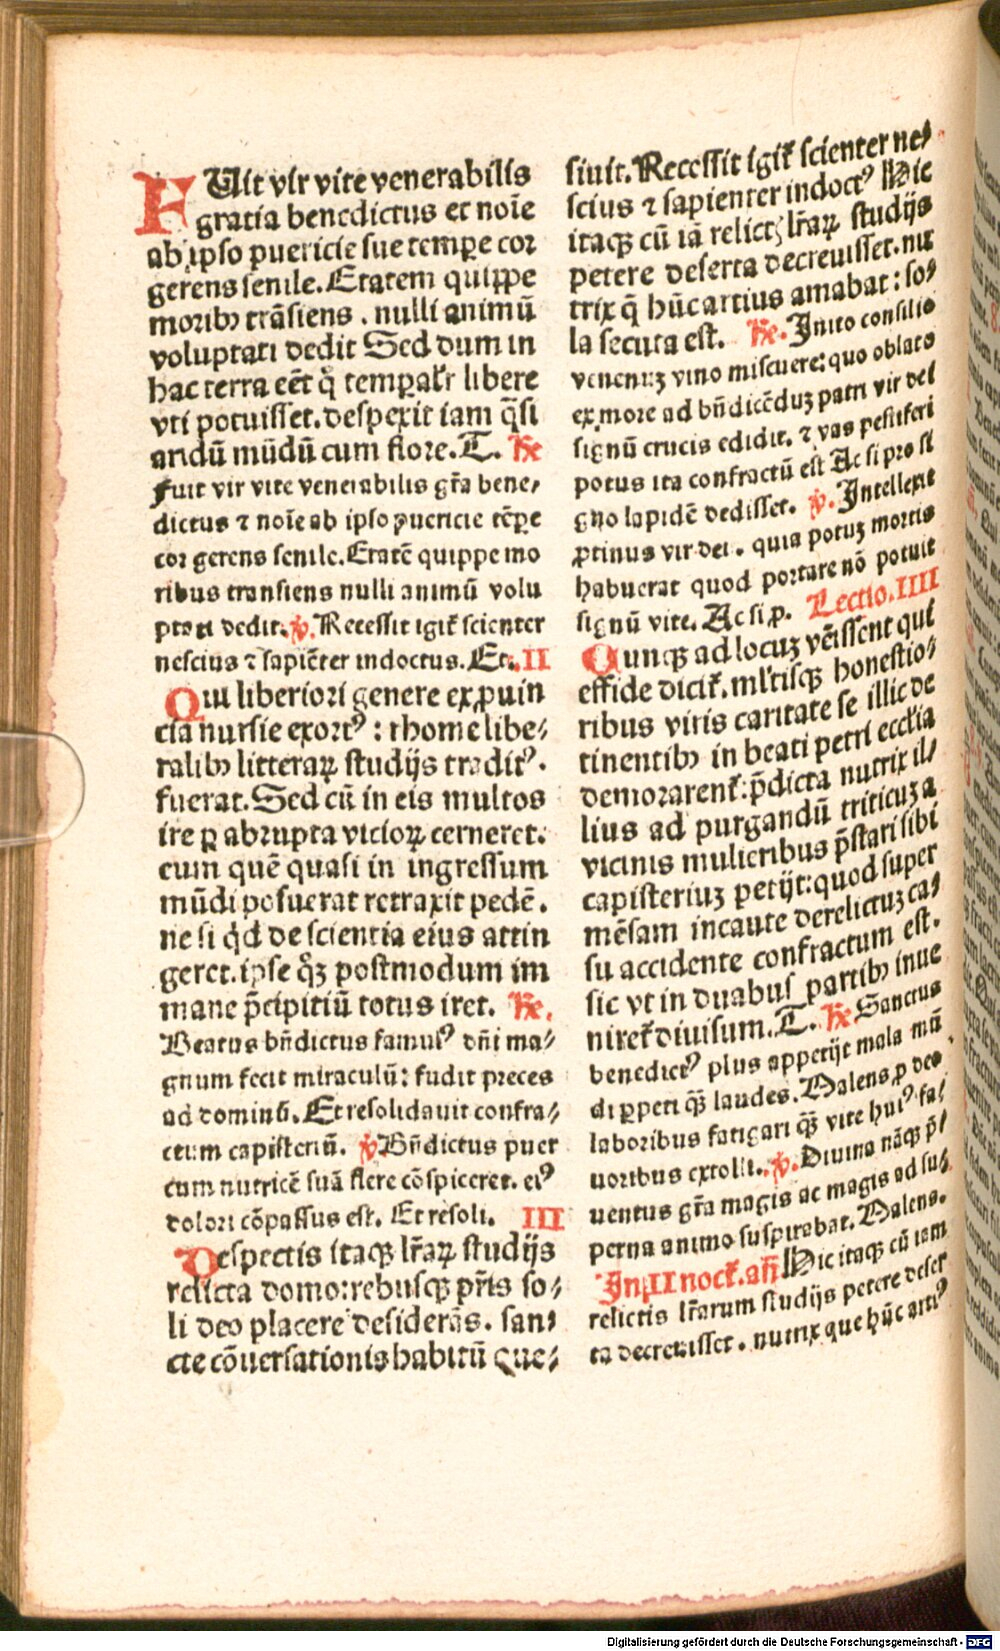 FUit vir vite venerabilis
gratia benedictus et noīe
ab ipso puericie sue tempe cor
gerens senile. Etatem quippe
moribꝫ trāsiens . nulli animū
voluptati dedit Sed dum in
hac terra eēt q̊ tempaľr libere
vti potuisset. despexit iam q̄si
aridū mūdū cum flore. T. R̄e
Fuit vir vite venerabilis gr̄a bene⸗
dictus ⁊ noīe ab ipso puericie tēpe
cor gerens senile. Etatē quippe mo
ribus transiens nulli animū volu
ptati dedit. v̄. Recessit igiť scienter
nescius ⁊ sapiēter indoctus. Et. II
Qui liberiori genere ex ꝓuin
cia nursie exortꝰ : rhome libe⸗
ralibꝫ litteraꝝ studijs traditꝰ.
fuerat. Sed cū in eis multos
ire ꝑ abrupta vicioꝝ cerneret.
eum quē quasi in ingressum
mūdi posuerat retraxit pedē.
ne si qd̓ de scientia eius attin
geret. ipse q̊ꝫ postmodum im
mane p̄cipitiū totus iret. R̄e.
Beatus bn̄dictus famulꝰ dn̄i ma⸗
gnum fecit miraculū: fudit preces
ad dominū. Et resolidauit confra⸗
ctum capisteriū. v̄ Bn̄dictus puer
cum nutricē suā flere cōspiceret. eiꝰ
dolori cōpassus est. Et resoli. III
Despectis itaqꝫ lr̄aꝝ studijs
relicta domo: rebusqꝫ pr̄is so⸗
li deo placere desiderās. san⸗
cte cōuersationis habitū que⸗
siuit. Recessit igiť scienter ne⸗
scius ⁊ sapienter indoctꝰ Hic
itaqꝫ cū iā relictꝭ lr̄aꝝ studijs
petere deserta decreuisset. nu
trix q̄ hūc artius amabat : so⸗
la secuta est. R̄e. Inito consilio
venenuꝫ vino miscuere: quo oblato
ex more ad bn̄dicēduꝫ patri vir dei
signū crucis edidit. ⁊ vas pestiferi
potus ita confractū est Ac si pro si
gno lapidē dedisset. v̄. Intellexit
ꝓtinus vir dei . quia potuꝫ mortis
habuerat quod portare nō potuit
signū vite. Ac si ꝓ. Lectio. IIII
Cunqꝫ ad locuꝫ vēissent qui
effide diciť. mľtisqꝫ honestio⸗
ribus viris caritate se illic de
tinentibꝫ in beati petri ecclīa
demorarenť: p̄dicta nutrix il⸗
lius ad purgandū triticuꝫ a
vicinis mulieribus p̄stari sibi
capisteriuꝫ petijt: quod super
mēsam incaute derelictuꝫ ca⸗
su accidente confractum est.
sic vt in duabus partibꝫ inue
nireť diuisum. T. R̄e Sanctus
benedictꝰ plus appetijt mala mū
di ꝑpeti qꝫ̄ laudes. Malens ꝓ deo
laboribus fatigari qꝫ̄ vite huiꝰ fa⸗
uoribus extolli. v̄. Diuina nāqꝫ p̄⸗
uentus gr̄a magis ac magis ad su⸗
perna animo suspirabat. Malens.
In II nocť. an̄ Hic itaqꝫ cū iam
relictis lr̄arum studijs petere deser
ta decreuisset . nutrix que hūc artiꝰ
Digitalisierung gefördert durch die Deutsche Forschungsgemeinschaft - DFG